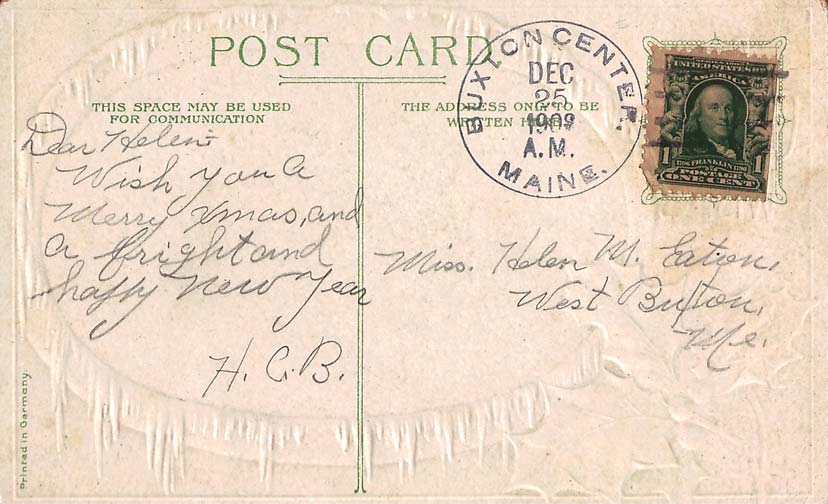 POST CARD
THIS SPACE MAY BE USED
FOR COMMUNICATION
THE ADDRESS ONLY TO BE
WRITTEN HERE
BUXTON CENTER,
DEC
25
1909
A.M.
MAINE.
SERIES 1902
UNITED STATES
OF AMERICA
1706 FRANKLIN 1790
1 POSTAGE 1
ONE CENT
Dear Helen:
Wish you a
Merry Xmas, and
a bright and
happy New Year
H. C. B.
Miss. Helen M. Eaton,
West Buxton,
Me.
Printed in Germany